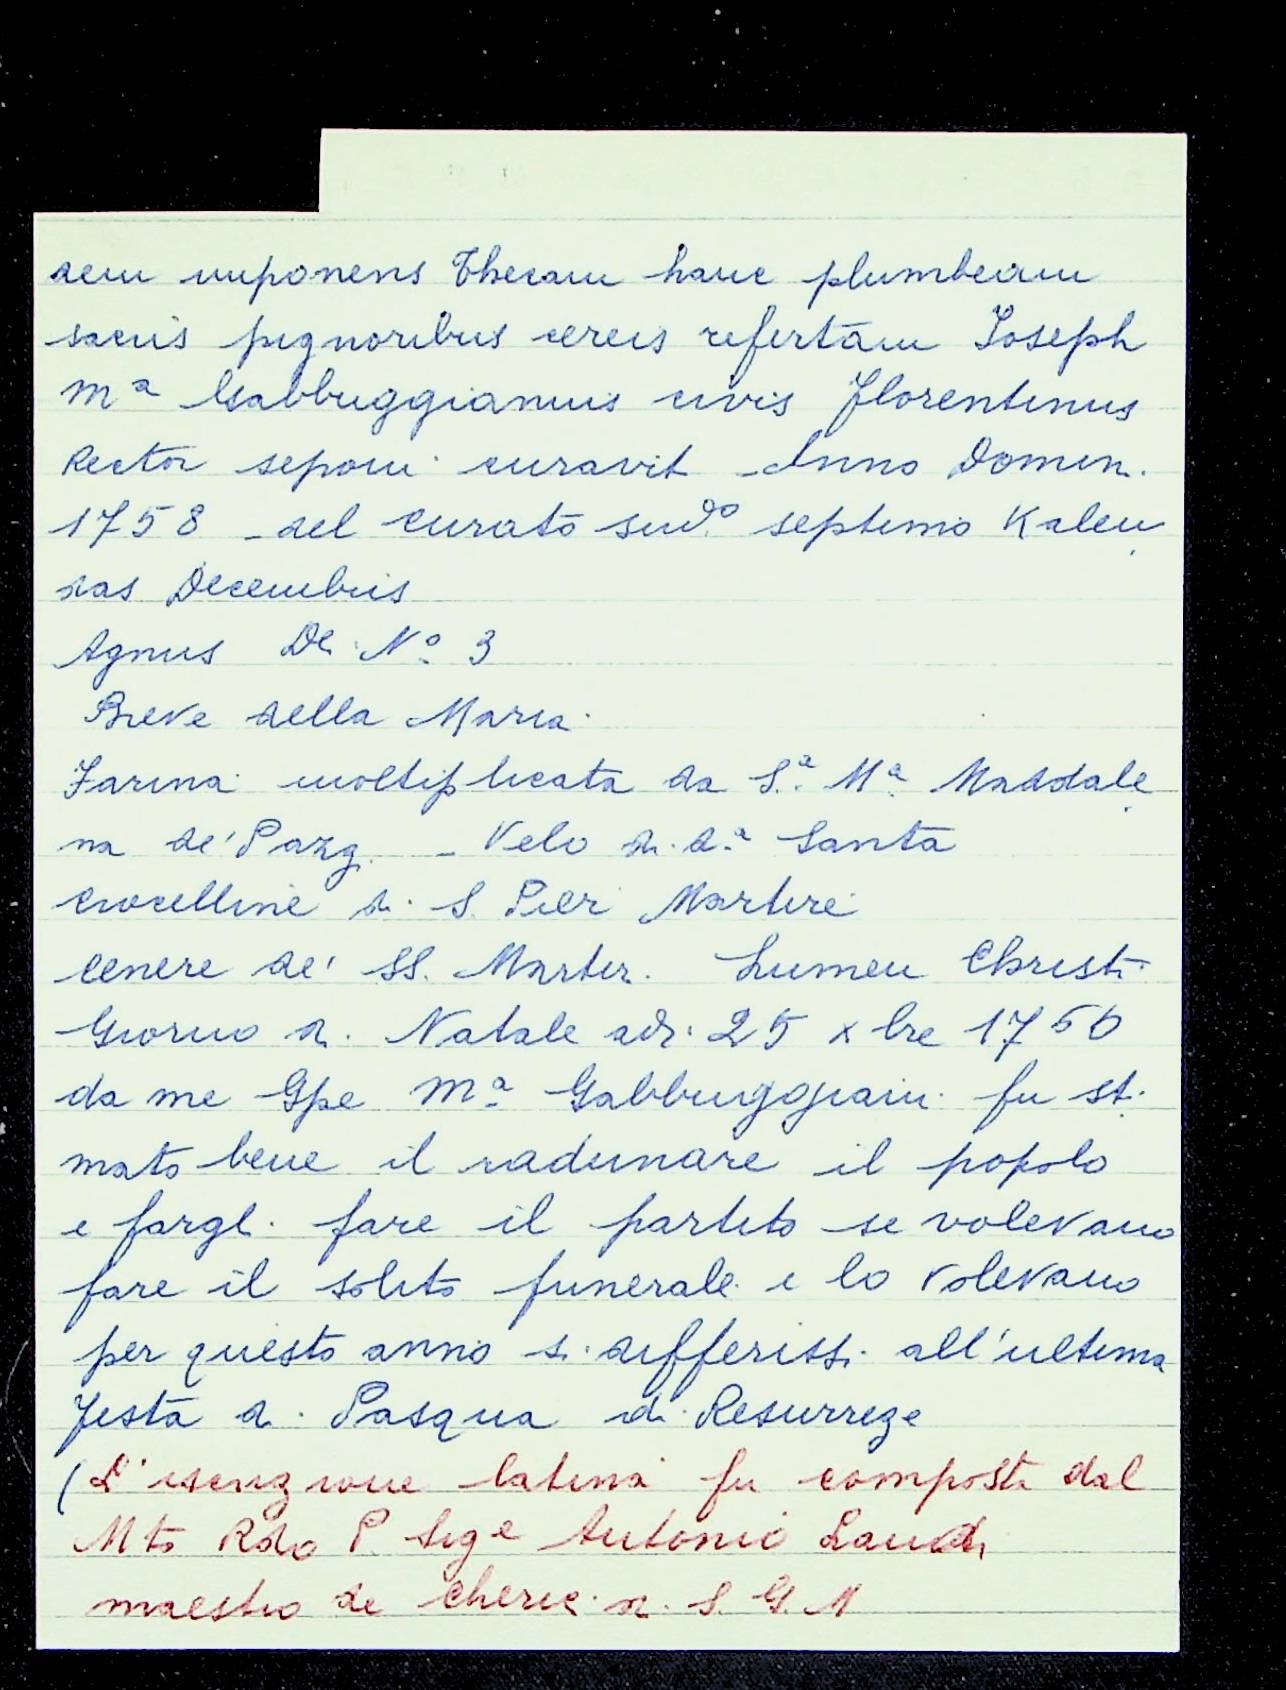 dem imponens Thecam hanc plumbeam
sacris pignoribus cereis refertam Joseph
Mª Gabbuggianius civis Florentinus
Rector seponi curavit Anno Domin.
1758 - del curato sudº septimo Kalen
das Decembris
Agnus Dei Nº 3
Breve della Maria
Farina moltiplicata da S.ª Mª Maddale
na de' Pazzi - Velo di d.ª Santa
crocelline di S. Pier Martire
cenere de' SS. Martiri. Lumen Christi
Giorno di Natale adì 25 xbre 1756
da me Gpe Mª Gabbuggiani fu sti
mato bene il radunare il popolo
e fargli fare il partito se volevano
fare il solito funerale e lo volevano
per questo anno si differissi all'ultima
festa di Pasqua di Resurreze
(L'iscrizione latina fu composta dal
Mto Rdo P. Sige Antonio Landi
maestro de cherici di S. G. N